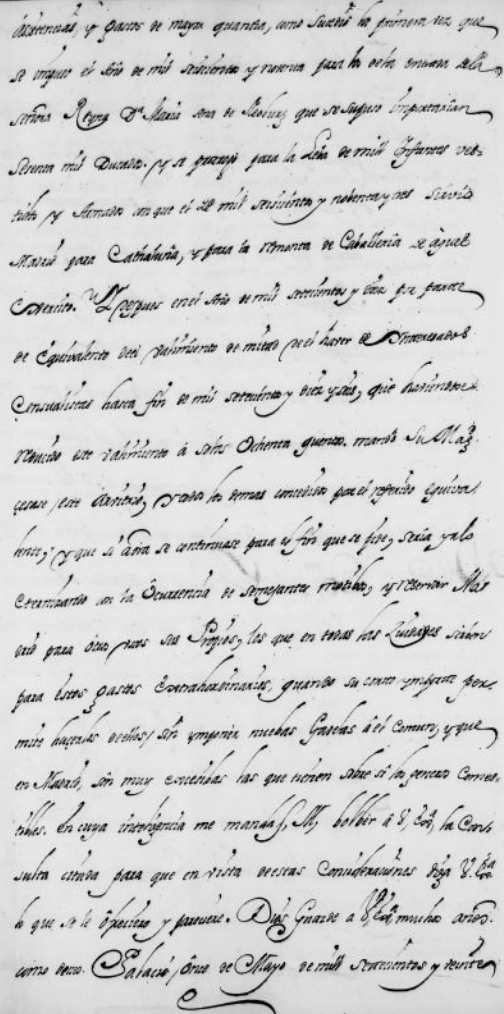 asistencias, y gastos de mayor quantia, como suzedio la primera vez que
se impuso el Año de mil seiscientos y nouenta para la de la entrada de la
señora Reyna D.ª Maria Ana de Neoburg que se supuso importarian
sesenta mil Ducados. y se prorrogo para la Leba de mill Infantes ves=
tidos y Armados con que el de mil seiscientos y nobenta y tres siruio
Madrid para Cathaluña, y para la remonta de Caualleria de aquel
Exercito. Y despues en el Año de mil settecientos y diez por parte
de equibalente del Valimiento de mitad de el hauer de Interesados
Censualistas hasta fin de mil setecientos y diez y seis, que hauiendose
reducido este valimiento á solos Ochenta quentos. mando Su Mag.
cesase este Arvitrio, y todos los demas concedidos por el referido equiva
lente, y que si aora se continuase para el fin que se pide, seria
con la Ocurrencia de semejantes motibos, y reseruar Ma
drid para otros vsos sus Propios, los que en todas las Ciudades siruen
para estos gastos extrahordinarios, quando su corto importe per
mite hacerlos de ellos, sin imponer nuebas Gauelas á el Comun, y que
en Madrid, son muy crecidas las que tienen sobre si los generos Comes
tibles. En cuya inteligencia me manda S. M. bolber á V. Ex.ª la Con
sulta citada para que en vista de estas Consideraciones diga V. Ex.ª
lo que se le ofreciere y pareciere. Dios Guarde a V. Ex.ª muchos años.
como deseo. Palacio, once de Mayo de mill settecientos y veinte